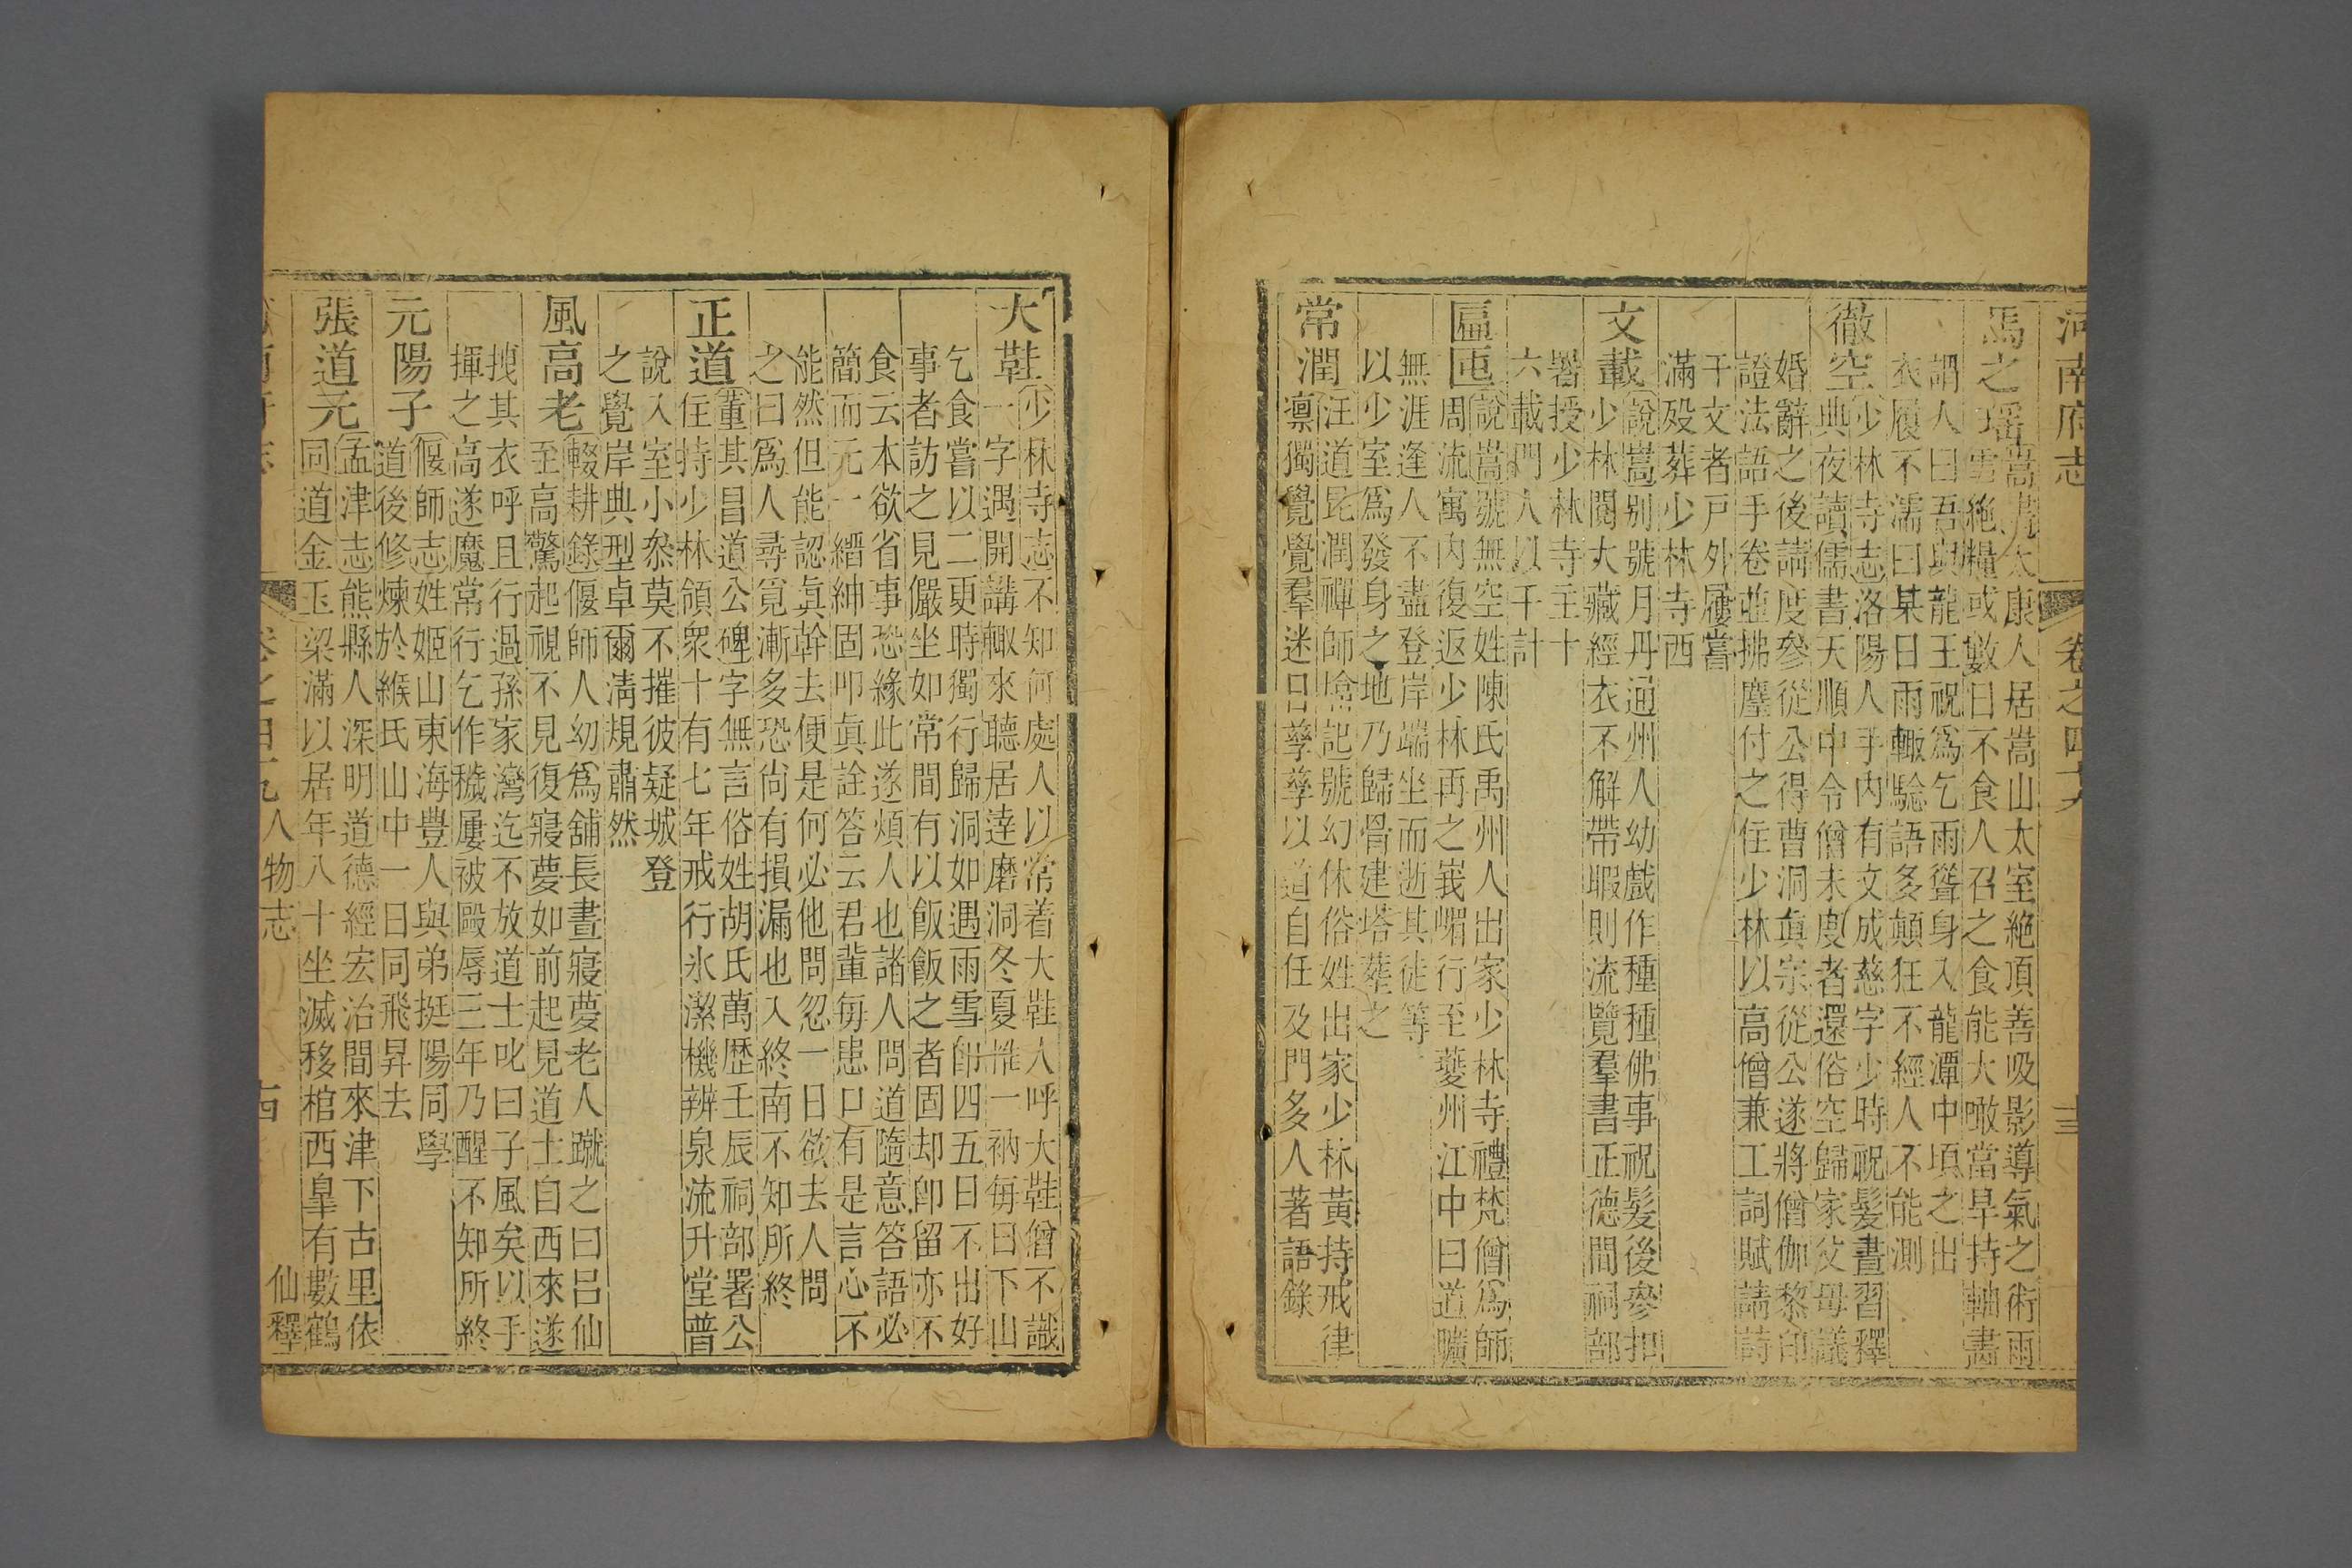 河南府志
卷之四十九
馮之瑶
嵩書太康人居嵩山太室絶頂善吸影導氣之術雨
雪絶糧或數日不食人召之食能大噉當旱持軸畵
謂人曰吾與龍王祝爲乞雨聳身入龍潭中頃之出
衣履不濡曰某日雨輙驗語多顛狂不經人不能測
徹空
少林寺志洛陽人手内有文成慈字少時祝髮晝習釋
典夜讀儒書天順中令僧未度者還俗空歸家父母議
婚辭之後請度叅從公得曹洞眞宗從公遂將僧伽黎印
證法語手卷並拂麈付之住少林以高僧兼工詞賦請詩
干文者戸外屨嘗
滿殁葬少林寺西
文載
說嵩别號月丹通州人幼戲作種種佛事祝髮後參扣
少林閱大藏經衣不解帶暇則流覽羣書正德間祠部
署授少林寺主十
六載門人以千計
匾囤
說嵩號無空姓陳氏禹州人出家少林寺禮梵僧爲師
周流寓内復返少林再之峩嵋行至夔州江中曰道曠
無涯逢人不盡登岸端坐而逝其徒等
以少室爲發身之地乃歸骨建塔葬之
常潤
汪道昆潤禪師塔記號幻休俗姓出家少林黄持戒律
禀獨覺覺羣迷日孳孳以道自任及門多人著語錄
大鞋
少林寺志不知何處人以常着大鞋人呼大鞋僧不識
一字遇開講輙來聽居達磨洞冬夏惟一衲每日下山
乞食嘗以二更時獨行歸洞如遇雨雪即四五日不出好
事者訪之見儼坐如常間有以飯飯之者固却即留亦不
食云本欲省事恐緣此遂煩人也諸人問道隨意答語必
簡而元一縉紳固叩眞詮答云君輩毎患口有是言心不
能然但能認眞幹去便是何必他問忽一日欲去人問
之曰爲人尋覓漸多恐尚有損漏也入終南不知所終
正道
董其昌道公碑字無言俗姓胡氏萬歷壬辰祠部署公
住持少林領衆十有七年戒行氷潔機辨泉流升堂普
說入室小叅莫不摧彼疑城登
之覺岸典型卓爾淸規肅然
風高老
輟耕錄偃師人幼爲舖長晝寢夢老人蹴之曰吕仙
至高驚起視不見復寢夢如前起見道士自西來遂
拽其衣呼且行過孫家灣迄不放道士叱曰子風矣以手
揮之高遂魔常行乞作穢屢被毆辱三年乃醒不知所終
元陽子
偃師志姓姬山東海豐人與弟挺陽同學
道後修煉於緱氏山中一日同飛昇去
張道元
孟津志熊縣人深明道德經宏治間來津下古里依
同道金玉梁滿以居年八十坐滅移棺西皐有數鶴
人物志
仙釋